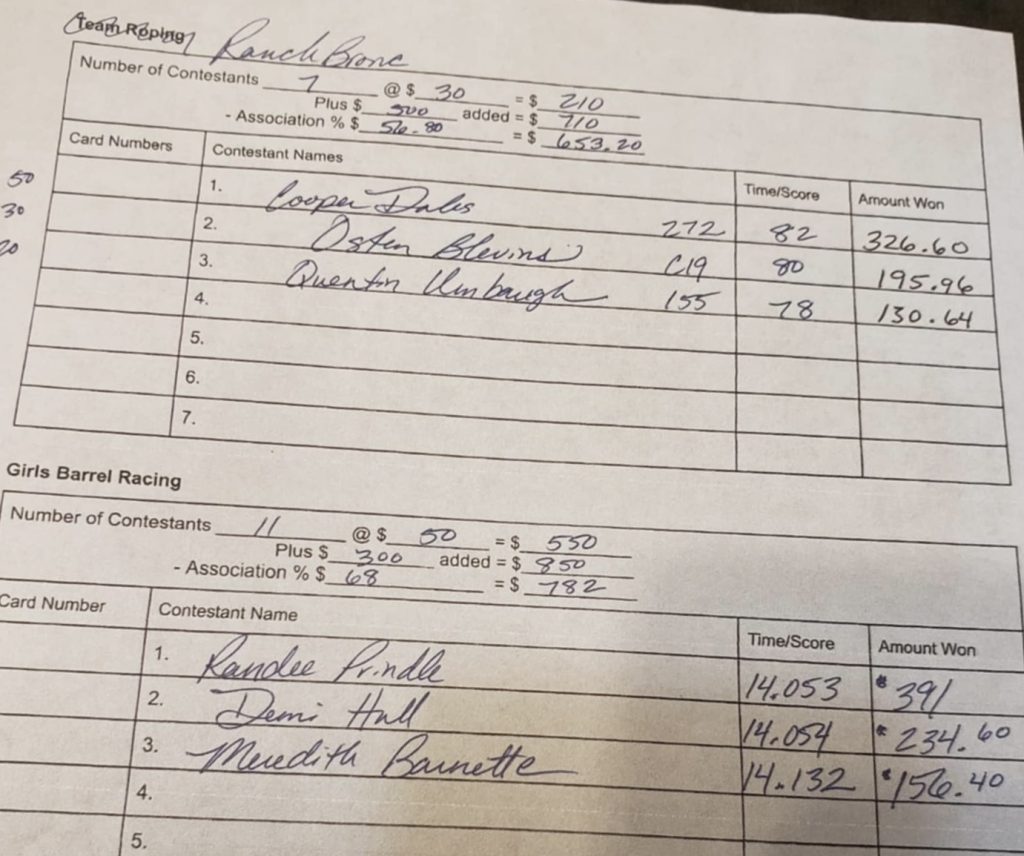 Team Roping Ranch Bronc
Number of Contestants 7 @ $ 30 = $ 210
Plus $ 500 added = $ 710
- Association % $ 56.80 = $ 653.20
Card Numbers Contestant Names Time/Score Amount Won
50
30
20
1. Cooper Dales 272 82 326.60
2. Osten Blevins C19 80 195.96
3. Quentin Umbaugh 155 78 130.64
4.
5.
6.
7.
Girls Barrel Racing
Number of Contestants 11 @ $ 50 = $ 550
Plus $ 300 added = $ 850
- Association % $ 68 = $ 782
Card Number Contestant Name Time/Score Amount Won
1. Randee Prindle 14.053 $ 391
2. Demi Hall 14.054 $ 234.60
3. Meredith Barnette 14.132 $ 156.40
4.
5.